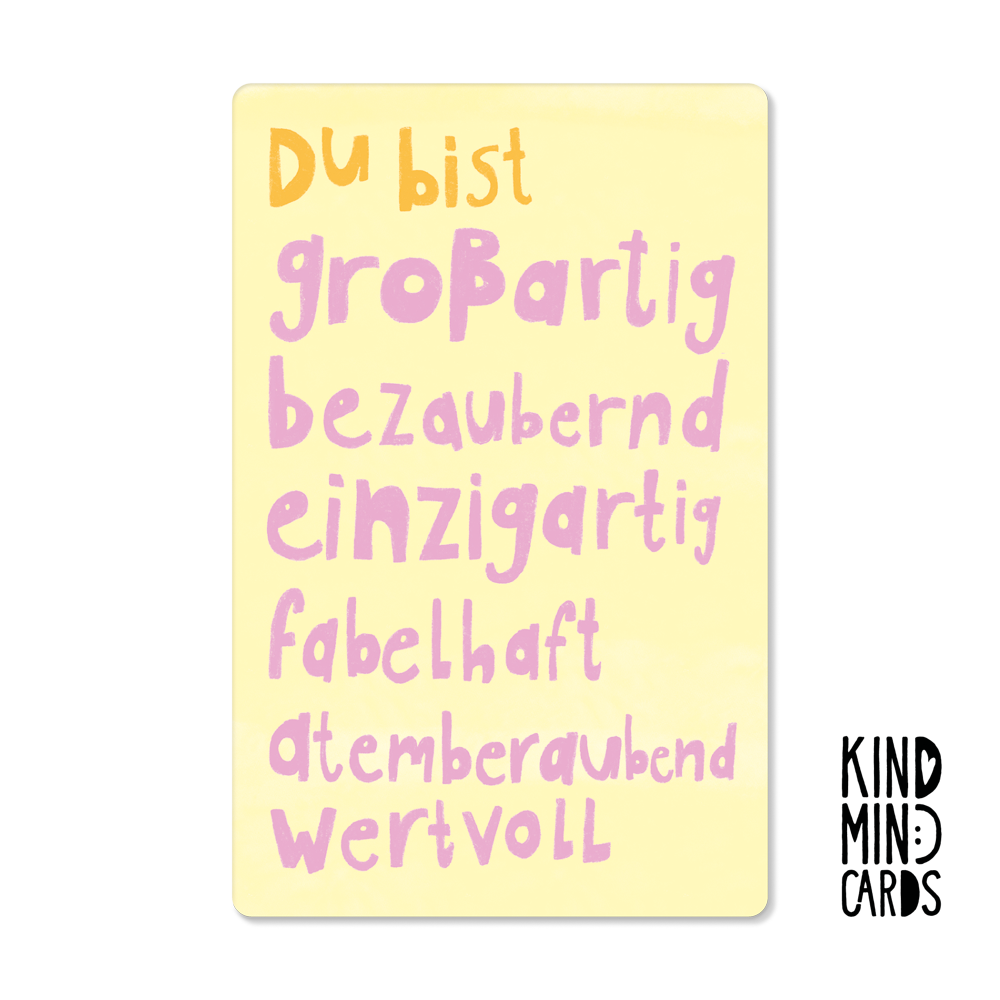 Du bist
großartig
bezaubernd
einzigartig
fabelhaft
atemberaubend
wertvoll
KIND
MIND
CARDS